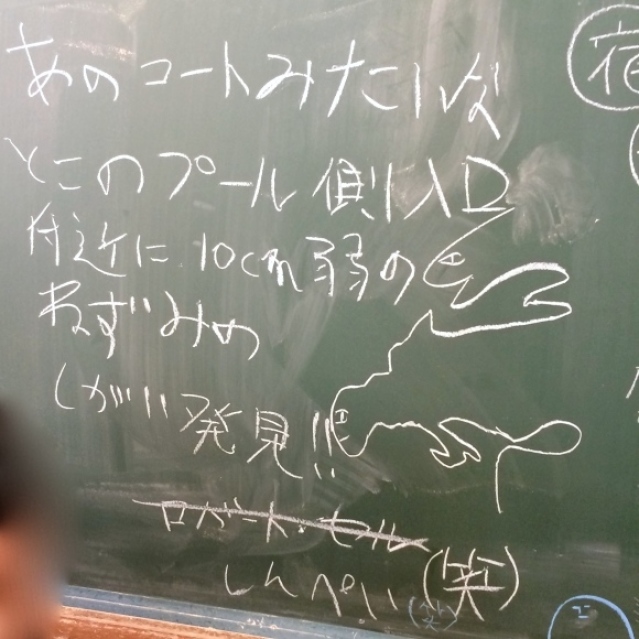 あのコートみたいな
とこのプール側入口
付近に、10cm弱の
ねずみの
しがい発見!!
ロバート・セル
しんぺい(笑)
(笑)
宿